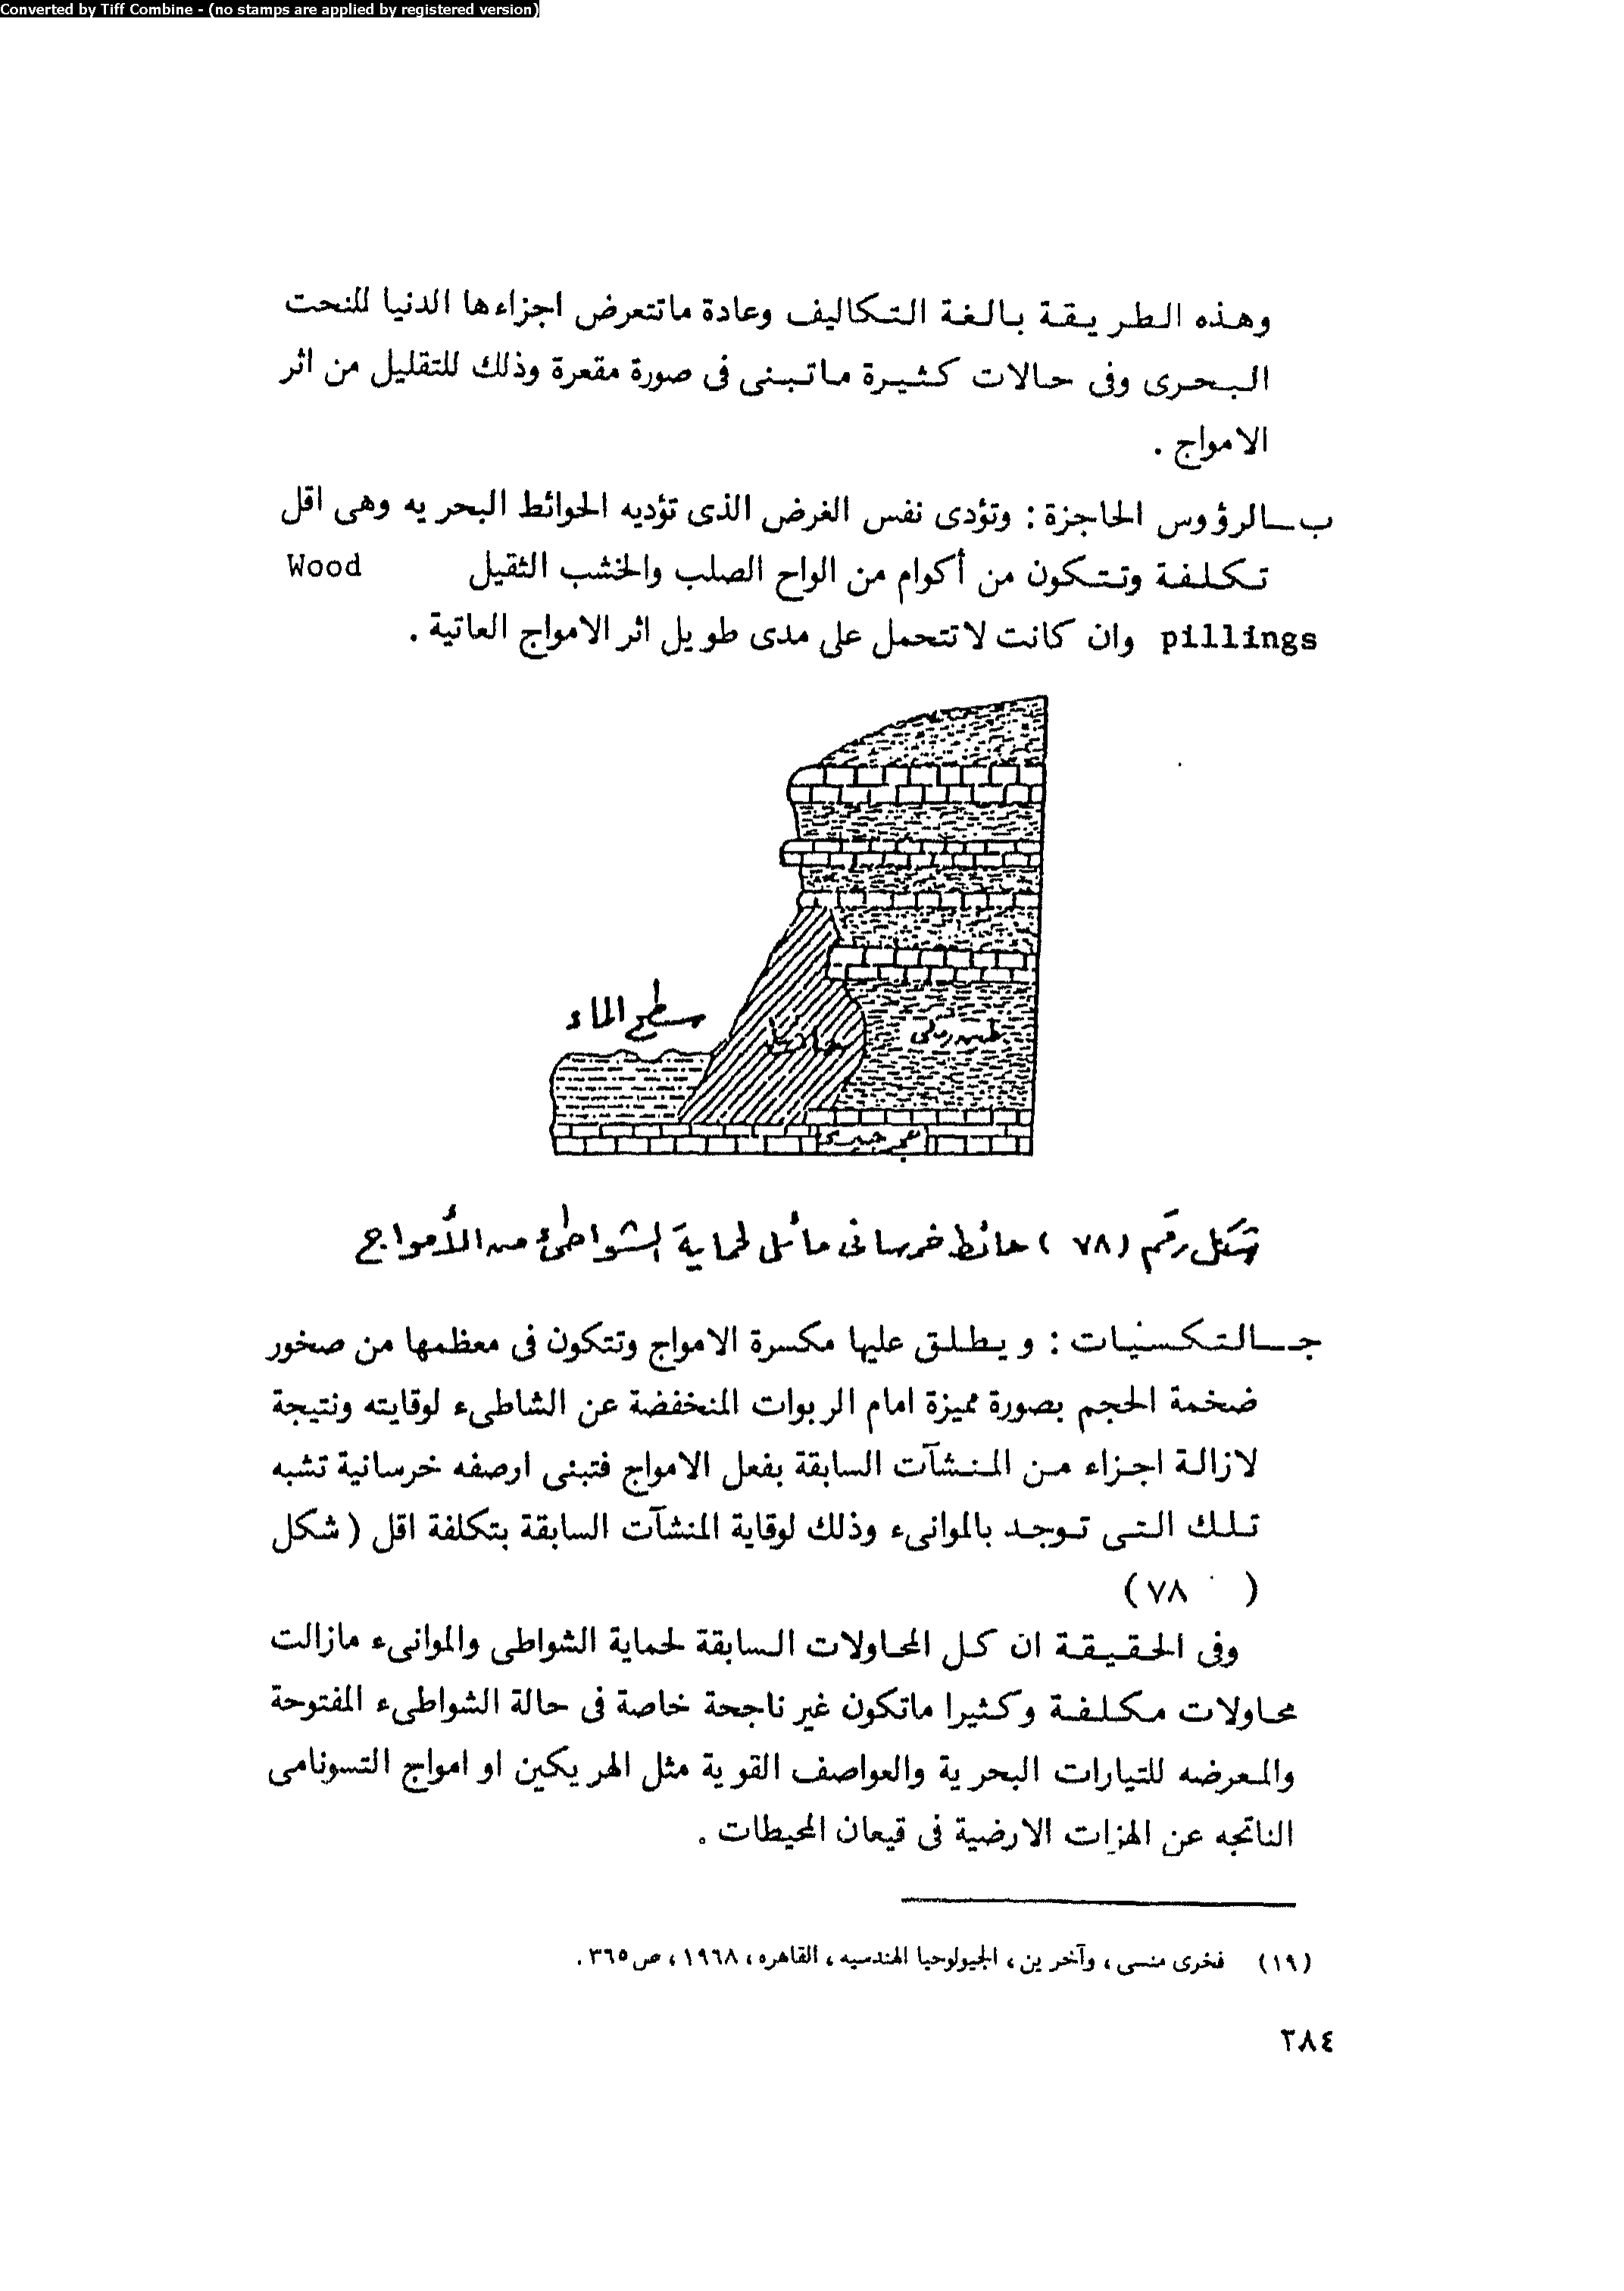 Converted by Tiff Combine - (no stamps are applied by registered version)
وهذه الطريقة بالغة التكاليف وعادة ماتتعرض اجزاءها الدنيا للنحت
البحرى وفى حالات كثيرة ماتبنى فى صورة مقعرة وذلك للتقليل من اثر
الامواج .
ب ــ الرؤوس الحاجزة : وتؤدى نفس الغرض الذى تؤديه الحوائط البحريه وهى اقل
تكلفة وتتكون من أكوام من الواح الصلب والخشب الثقيل Wood
pillings وان كانت لاتتحمل على مدى طويل اثر الامواج العاتية .
سطح الماء
حائط
طين رملى
حجر جيرى
شكل رقم (٧٨) حائط خرسانى مائل لحماية الشواطئ من الأمواج
جـ ــ التكسيات : ويطلق عليها مكسرة الامواج وتتكون فى معظمها من صخور
ضخمة الحجم بصورة مميزة امام الربوات المنخفضة عن الشاطىء لوقايته ونتيجة
لازالة اجزاء من المنشآت السابقة بفعل الامواج فتبنى ارصفه خرسانية تشبه
تلك التى توجد بالموانىء وذلك لوقاية المنشآت السابقة بتكلفة اقل (شكل
٧٨)
وفى الحقيقة ان كل المحاولات السابقة لحماية الشواطى والموانىء مازالت
محاولات مكلفة وكثيرا ماتكون غير ناجحة خاصة فى حالة الشواطىء المفتوحة
والمعرضه للتيارات البحرية والعواصف القوية مثل الهريكين او امواج التسونامى
الناتجه عن الهزات الارضية فى قيعان المحيطات .
(١٩) فخرى منسى ، وآخرين ، الجيولوجيا الهندسيه ، القاهره ، ١٩٦٨ ، ص ٣٦٥ .
٢٨٤